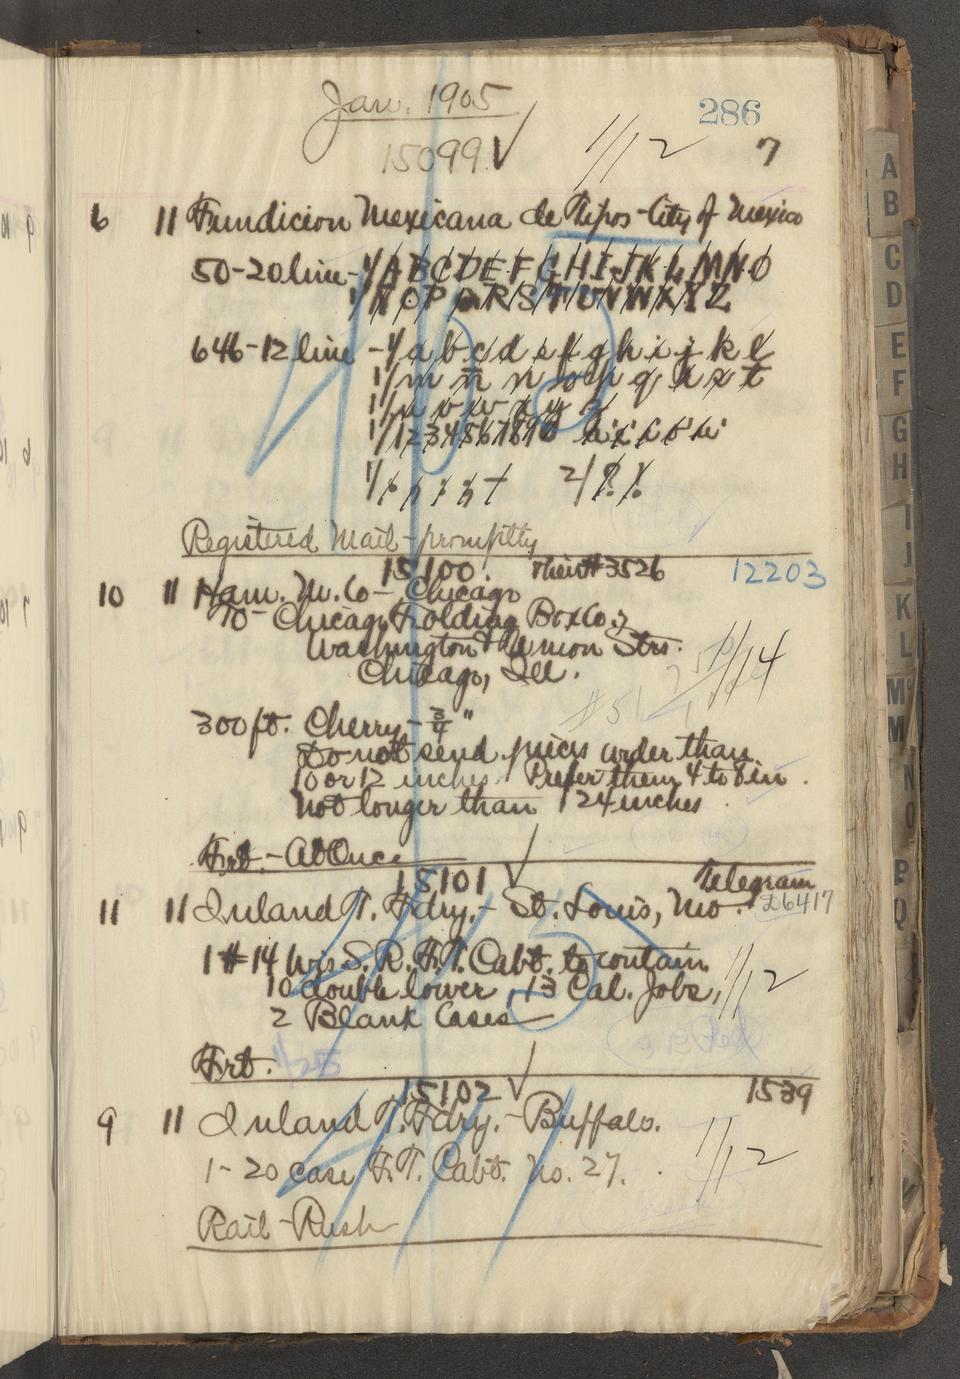 Jan. 1905
286
15099 ✓ 1/12 7
6 11 Fundicion Mexicana de Tipos - City of Mexico
50-20 line - 1/ A B C D E F G H I J K L M N O
1/ Ñ O P Q R S T U V W X Y Z
646-12 line - 1/ a b c d e f g h i j k l
1/ m n̄ n o p q r s t
1/ u v w x y z
1/ 1 2 3 4 5 6 7 8 9 0
1/ 2/
Registered Mail - promptly
15100. Their # 3526 12203
10 11 Ham. M. Co - Chicago
To - Chicago Folding Box Co.
Washington & Union Strs.
Chicago, Ill.
1/14
#51
300 ft. Cherry - 3/4"
Do not send pieces under than
10 or 12 inches. Prefer them 4 to 8 in.
Not longer than 124 inches.
Frt. - At Once
15101 ✓ Telegram
11 11 Inland T. Fdry. - St. Louis, Mo. 26417
1 # 14 Wis S. R. F. T. Cabt. to contain
10 double lower, 13 Cal. Jobs, 1/12
2 Blank Cases
Frt. 1/25
15102 ✓ 1539
9 11 Inland T. Fdry. - Buffalo.
1 - 20 case F. T. Cabt. No. 27. 1/12
Rail - Rush
A
B
C
D
E
F
G
H
I
J
K
L
M
M
N
O
P
Q